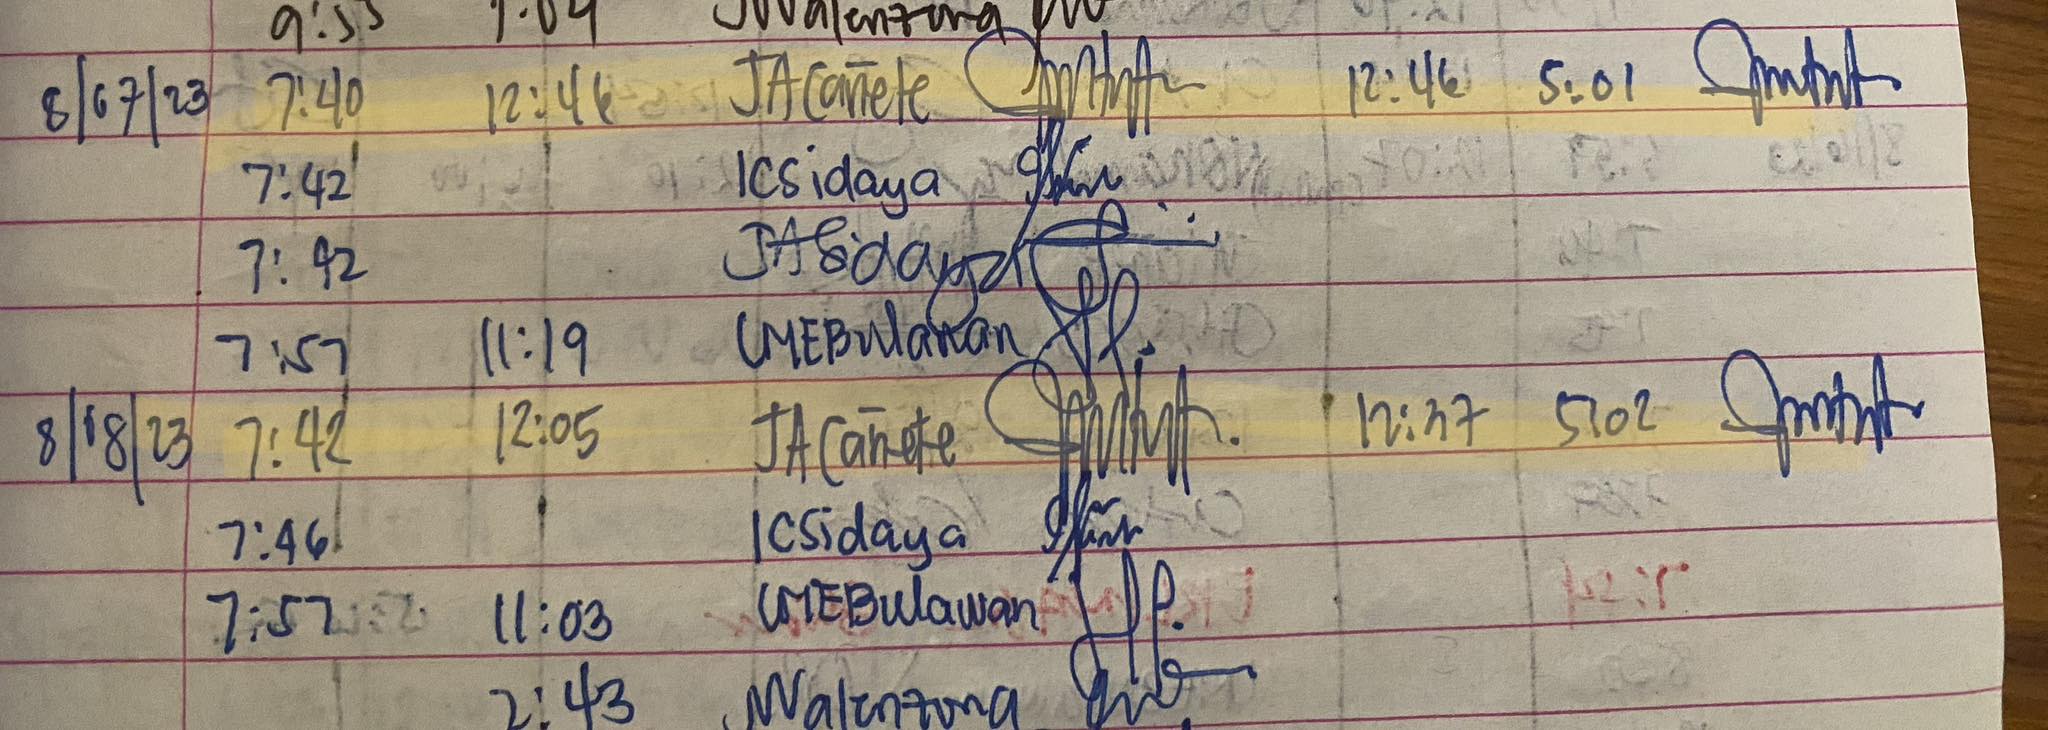 9:55 1:04 JWValenzona
8/07/23 7:40 12:46 JACañete 12:46 5:01
7:42 ICSidaya
7:42 JASidaya
7:57 11:19 LMEBulawan
8/18/23 7:42 12:05 JACañete 12:37 5:02
7:46 ICSidaya
7:57 11:03 LMEBulawan
2:43 JWValenzona